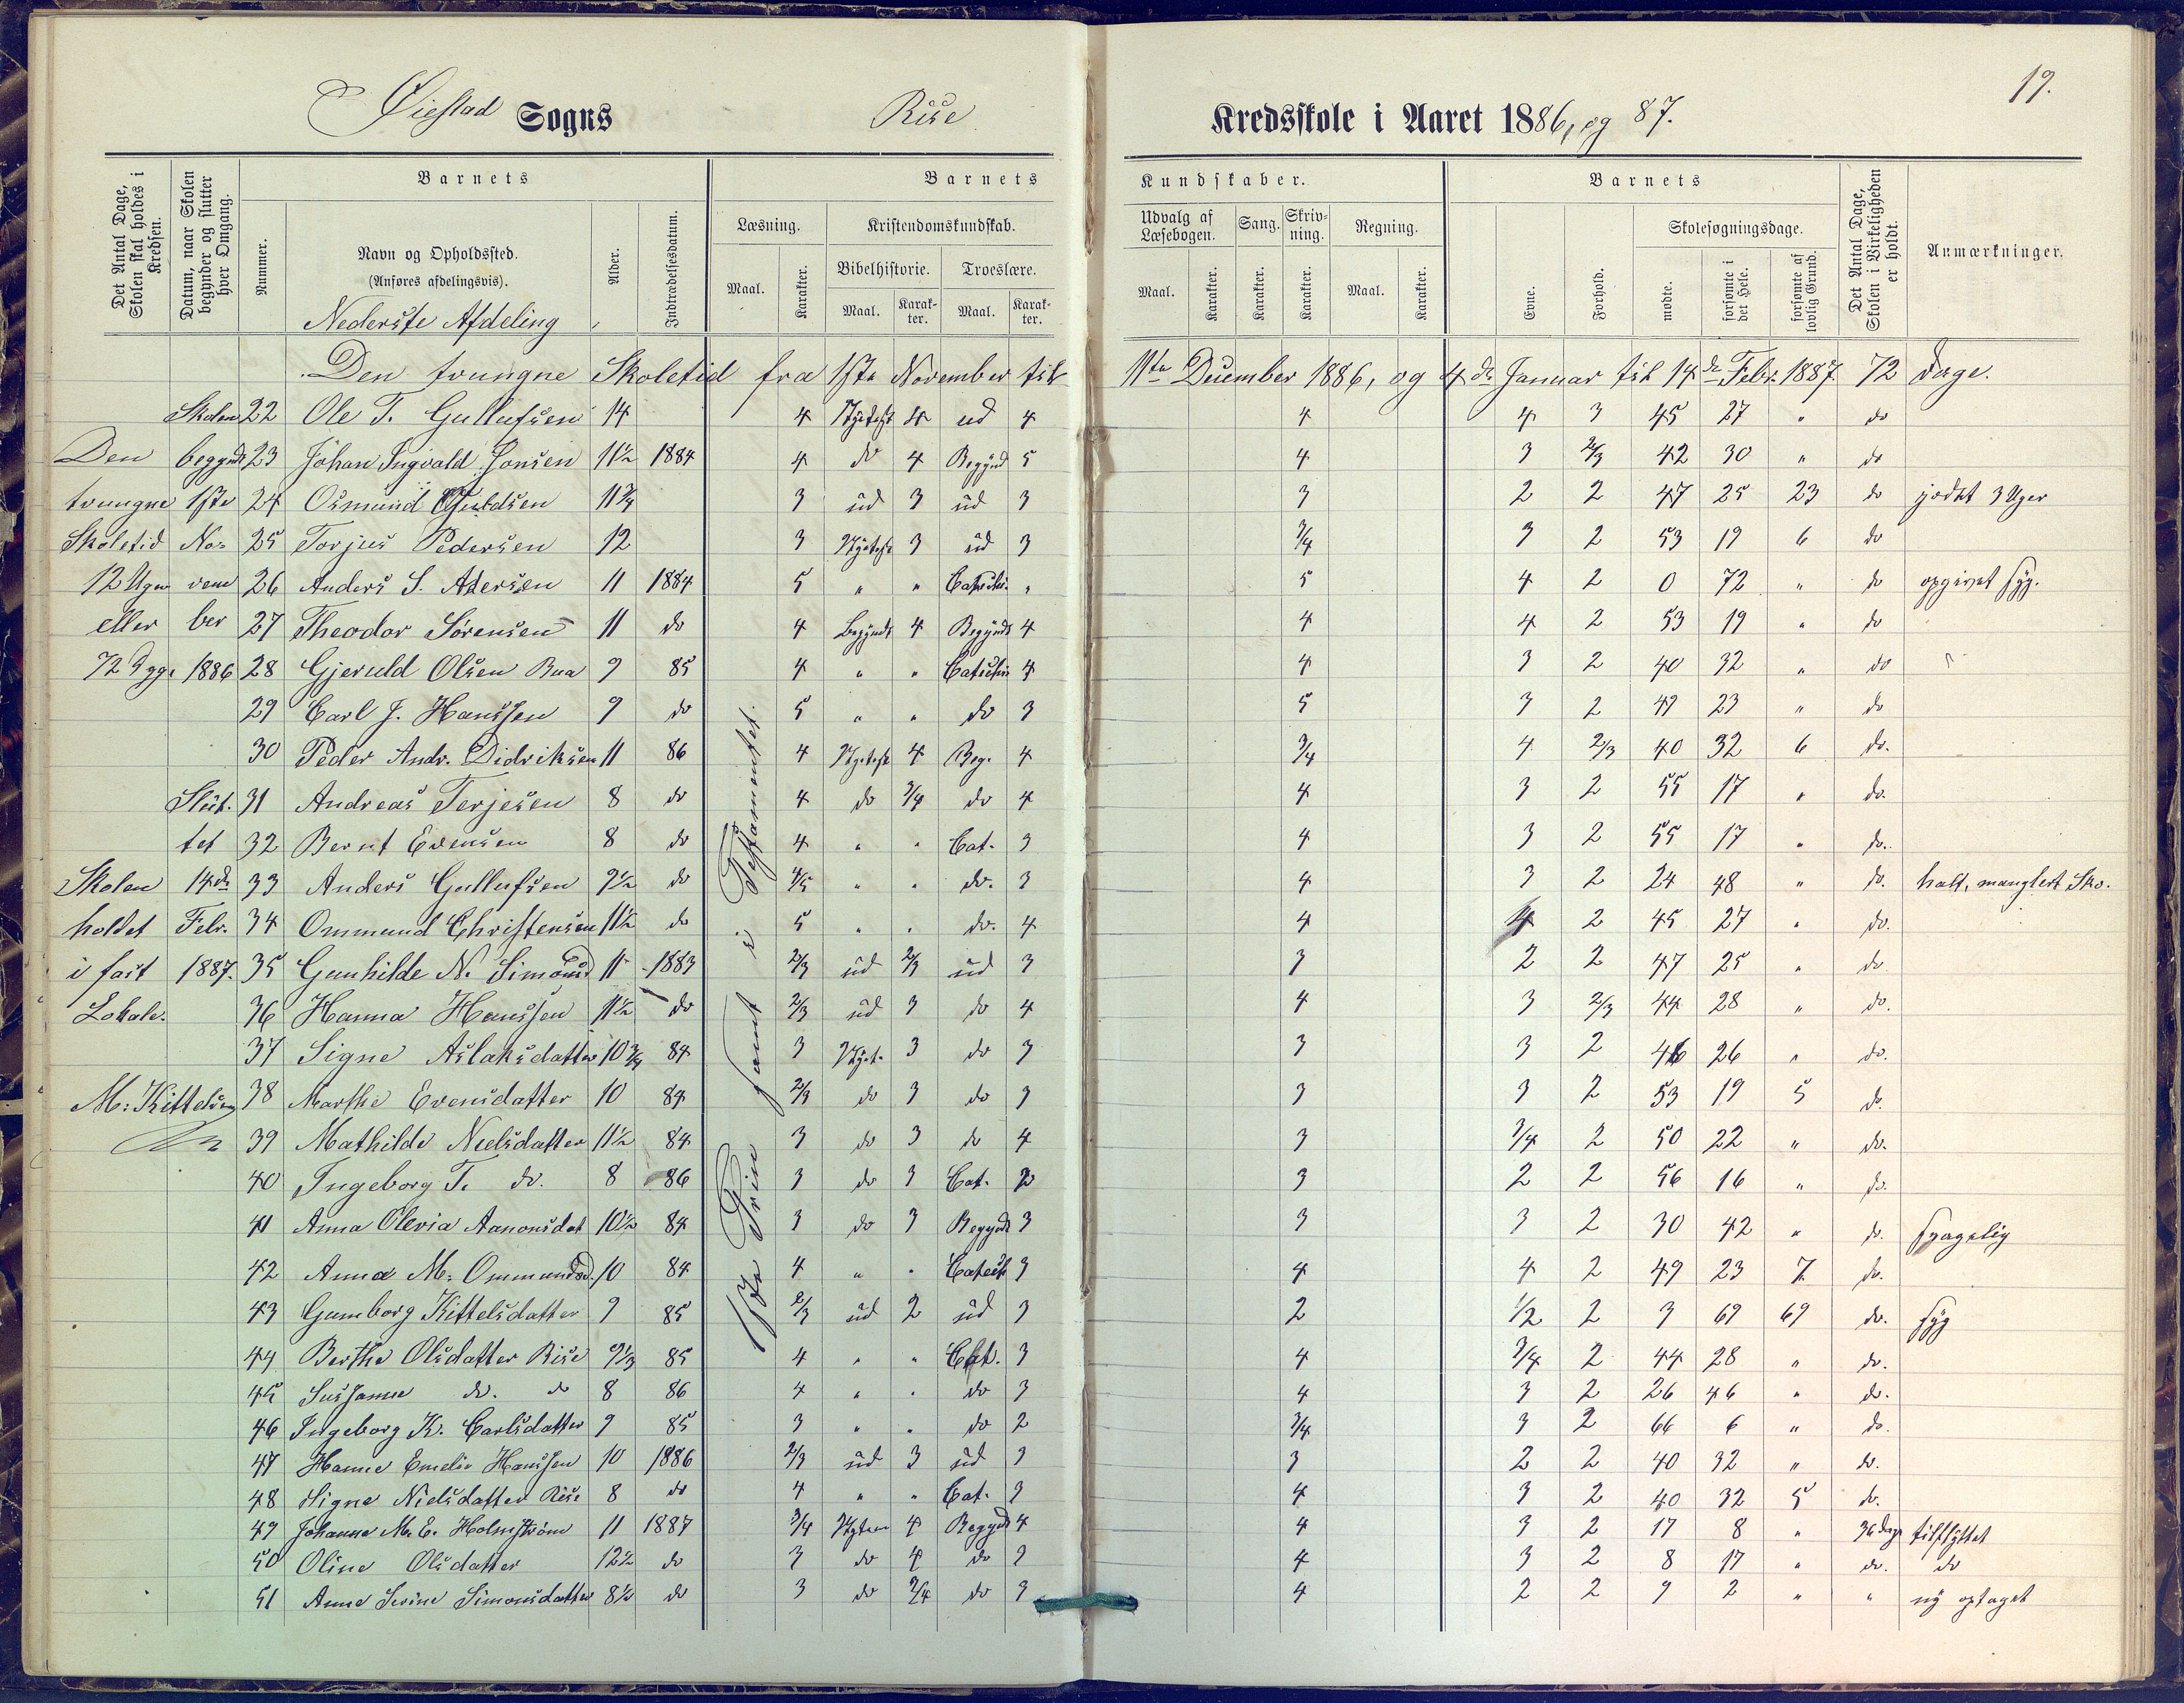 Øiestad Sogns Rise Kredsskole i Aaret 1886, og 87.
19.
Det Antal Dage, Skolen skal holdes i Kredsen.
Datum, naar Skolen begynder og slutter hver Omgang.
Barnets
Nummer.
Navn og Opholdssted.
(Anføres afdelingsvis).
Nederste Afdeling
Alder.
Indtrædelsesdatum.
Barnets Kundskaber.
Læsning.
Maal.
Karakter.
Kristendomskundskab.
Bibelhistorie.
Maal.
Karakter.
Troeslære.
Maal.
Karakter.
Udvalg af Læsebogen.
Maal.
Karakter.
Sang.
Karakter.
Skrivning.
Karakter.
Regning.
Maal.
Karakter.
Barnets
Evne.
Forhold.
Skolesøgningsdage.
mødte.
forsømte i det Hele.
forsømte af lovlig Grund.
Det Antal Dage, Skolen i Virkeligheden er holdt.
Anmærkninger.
Den tvungne Skoletid fra 1ste November til 11te December 1886, og 4de Januar til 14de Febr. 1887. 72 Dage.
Skolen 22 Ole T. Gullufsen 14 4 4 ud 4 4 4 3 45 27 " do
Den begyndt 23 Johan Ingvald Jonsen 11½ 1884 4 do 4 Begynd 5 4 3 2/3 42 30 " do
tvungne 1ste 24 Osmund 11¾ 3 ud 3 ud 3 3 2 2 47 25 23 do jædet 3 Uger
Skoletid No- 25 Torjus Pedersen 12 3 3 ud 3 3/4 3 2 53 19 6 do
12 Uger vem 26 Anders S. 11 1884 5 " " " 5 4 2 0 72 " do opgivet syg.
eller ber 27 Theodor Sørensen 11 do 4 Begyndt 4 Begyndt 4 4 4 2 53 19 " do
72 1886 28 Gjeruld Olsen Bua 9 85 4 " " 4 4 3 2 40 32 " do
29 Carl J. Hanssen 9 do 5 " " do 3 5 3 2 49 23 " do
30 Peder Andr. Didriksen 11 86 4 4 Beg. 4 3/4 4 2/3 40 32 6 do.
Slut- 31 Andreas Terjesen 8 do 4 do 3/4 do 4 4 3 2 55 17 " do.
tet 32 Bernt Evensen 8 do 4 " " Cat. 3 4 3 2 55 17 " do.
Skolen 14de 33 Anders Gullufsen 9½ do 4/5 " " do. 3 4 3 2 24 48 " do. halt, manglert Sko.
holdet Febr. 34 Ommund Christensen 11½ do 5 " " do. 4 4 4 2 45 27 " do.
i fast 1887. 35 Gunhilde N. Simonsd 11 1883 2/3 ud 2/3 ud 3 3 2 2 47 25 " do
Lokale. 36 Hanna Hanssen 11½ do 2/3 ud 3 do 4 4 3 2/3 44 28 " do.
37 Signe Aslaksdatter 10¾ 84 3 3 do 3 3 3 2 46 26 " do.
M: Kittelsen 38 Marthe Evensdatter 10 84 2/3 do 3 do 3 3 3 2 53 19 5 do.
39 Mathilde Nielsdatter 11½ 84 3 do 3 do 4 3 3/4 2 50 22 " do.
40 Ingeborg T. do. 8 86 3 do 3 Cat. 2 3 2 2 56 16 " do.
41 Anna Olevia Aanonsdat 10½ 84 3 do 3 Begyndt 3 3 3 2 30 42 " do. svagelig
42 Anna M: Ommundsd. 10 84 4 " " 3 4 4 2 49 23 7. do.
43 Gumborg Kittelsdatter 9 85 2/3 ud 2 ud 3 2 1/2 2 3 69 69 do. syg
44 Berthe Olsdatter Rise 9⅓ 85 4 " " Cat. 3 4 3/4 2 44 28 " do.
45 Sussanne do. do 8 86 4 " " do 3 4 3 2 26 46 " do.
46 Ingeborg K. Carlsdatter 9 85 3 " " do 2 3/4 3 2 66 6 " do.
47 Hanne Emelie Hanssen 10 1886 2/3 ud 3 ud 3 3 2 2 40 32 " do.
48 Signe Nielsdatter Rise 8 do 4 " " Cat. 3 4 3 2 40 32 5 do.
49 Johanne M. E. Holmstrøm 11 1887 3/4 4 Begyndt 4 4 3 2 17 8 " 36 dage tilflyttet
50 Oline Olsdatter 12½ do 3 do 4 do 3 4 3 2 8 17 " do. do
51 Anne Serine Simonsdatter 8½ do 3 do 3/4 do 3 4 2 2 9 2 " " ny optaget
1ste Trin samt i Testamentet.